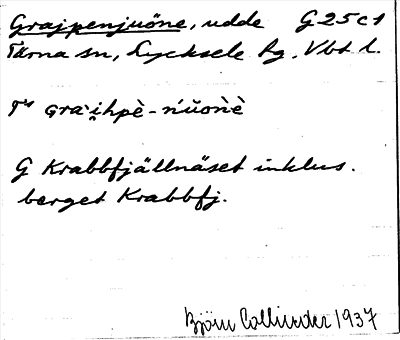 Grajpenjuöne, udde G 25 c 1
Tärna sn, Lycksele lg. Vbt l.
Tˢ Gràihpè-ńŭoǹè
G Krabbfjällnäset inklus.
berget Krabbfj.
Björn Collinder 1937